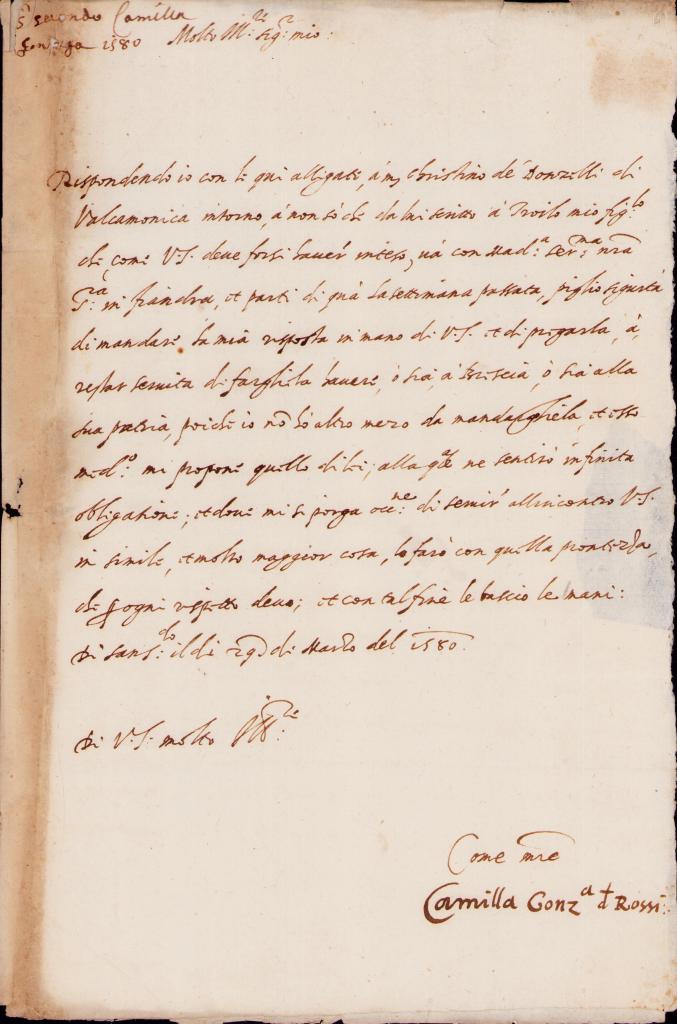 S. secondo Camilla
Gonzaga 1580 Molto Ill:re sig:r mio:
Rispondendo io con le qui alligate, á m. Christino de' Donzelli di
Valcamonica intorno, á non só che da lui scritto á Troilo mio fig:lo
che, come V.S. deve forsi haver' inteso, vá con Mad:a Ser:ma nra
S:ra in fiandra, et partí di quá la settimana passata, piglio sigurtá
di mandare la mia risposta in mano di V.S. et di pregarla, á,
restar servita di farghela havere, ó sia, á Brescia, ó sia alla
sua patria, poiche io nõ hó altro mezo da mandarghiela, et esso
med:o mi propone quello di lei; alla qle ne sentiró infinita
obligatione; et dove mi si porga occ:ne di servir' all'incontro V.S.
in simile, et molto maggior cosa, lo faró con quella prontezza,
che p ogni rispetto devo; et con tal fine le bascio le mani:
Di San S:do il di 29 di Marzo del 1580.
Di V.S. molto Ill:re
Come mre
Camilla Gonz:a d Rossi: